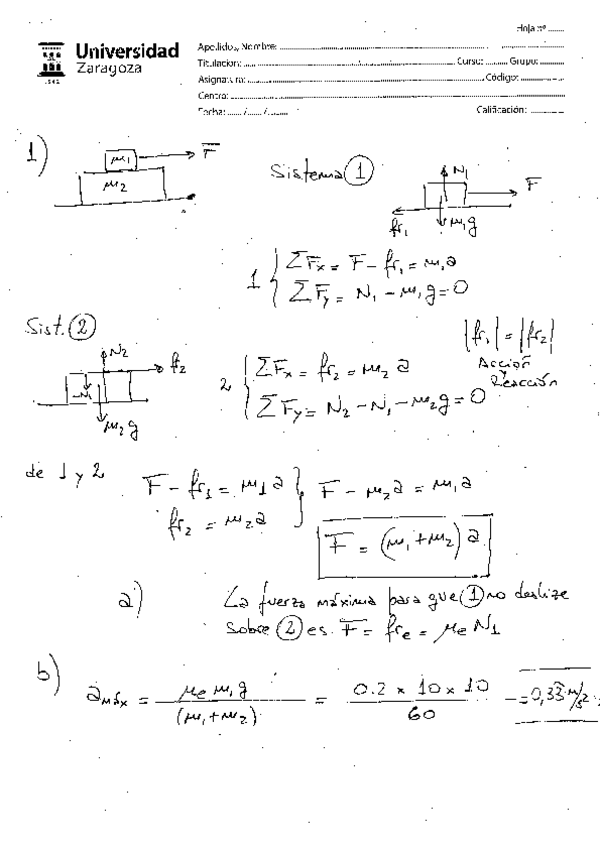 Hoja nº
Universidad
Zaragoza
1542
Apellidos, Nombre:
Titulación: Curso: Grupo:
Asignatura: Código:
Centro:
Fecha: / / Calificación:
1) m₁ F
m₂
Sistema ① N₁ F
fr₁ m₁g
1 { ΣFx = F - fr₁ = m₁a
ΣFy = N₁ - m₁g = 0
Sist. ②
N₂ fr₂
-N₁
m₂g
|fr₁| = |fr₂|
Acción
y
Reacción
2 { ΣFx = fr₂ = m₂ a
ΣFy = N₂ - N₁ - m₂g = 0
de 1 y 2
F - fr₁ = m1 a } F - m₂a = m₁a
fr₂ = m₂a
F = (m₁ + m₂) a
a) La fuerza máxima para que ① no deslize
sobre ② es. F = fre = μe N1
b) amáx = μe m₁g / (m₁ + m₂) = 0.2 × 10 × 10 / 60 = 0,33 m/s²